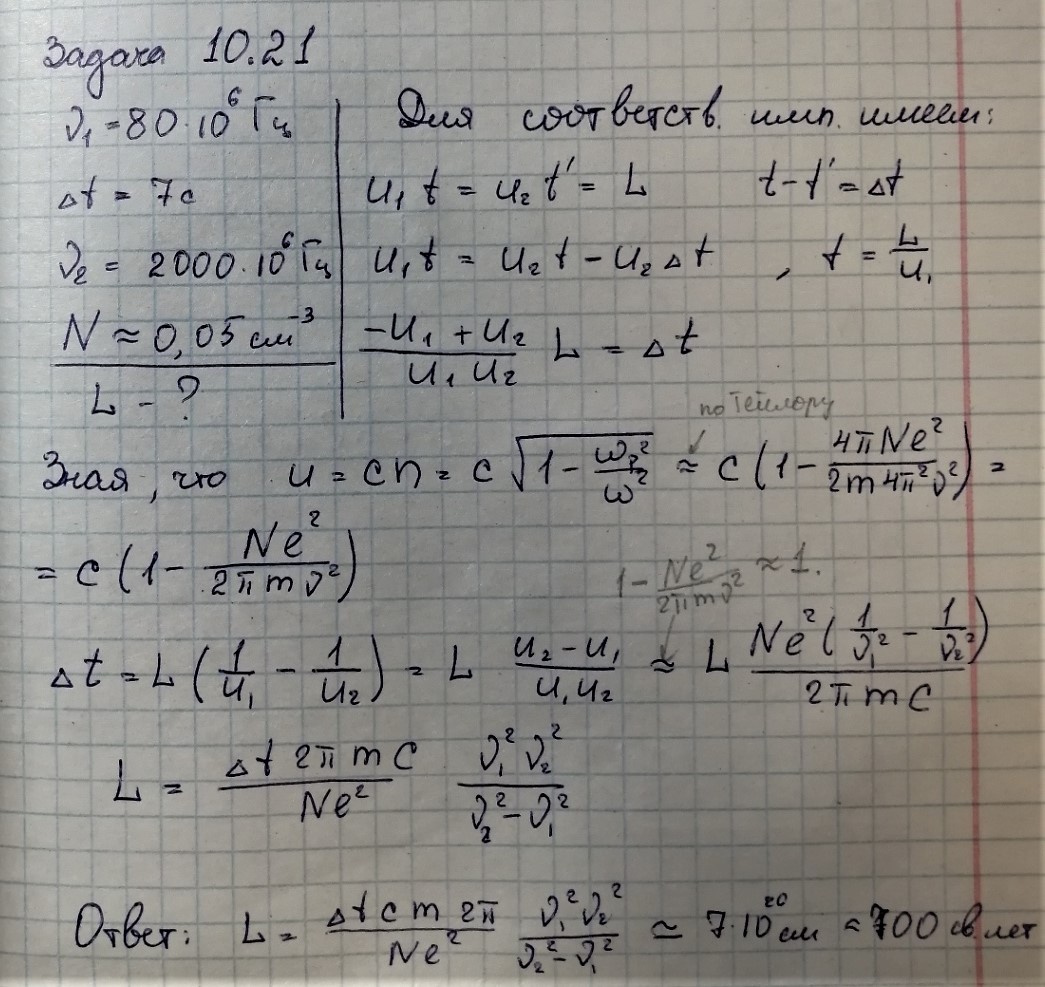 Задача 10.21
ν₁ = 80·10⁶ Гц
Δt = 7с
ν₂ = 2000·10⁶ Гц
N ≈ 0,05 см⁻³
L - ?
Для соответств. имп. имеем:
u₁t = u₂t' = L t - t' = Δt
u₁t = u₂t - u₂Δt , t = L/u₁
(-u₁ + u₂)/(u₁u₂) L = Δt
по Тейлору
Зная, что u = cn = c√(1 - ωₚ²/ω²) ≈ c(1 - 4πNe²/(2m4π²ν²)) =
= c(1 - Ne²/(2πmν²))
1 - Ne²/(2πmν²) ≈ 1.
Δt = L(1/u₁ - 1/u₂) = L (u₂ - u₁)/(u₁u₂) ≈ L Ne²(1/ν₁² - 1/ν₂²)/(2πmc)
L = Δt 2πmc/(Ne²) ν₁²ν₂²/(ν₂² - ν₁²)
Ответ: L = Δt c m 2π/(Ne²) ν₁²ν₂²/(ν₂² - ν₁²) ≃ 7·10²⁰ см ≈ 700 св. лет